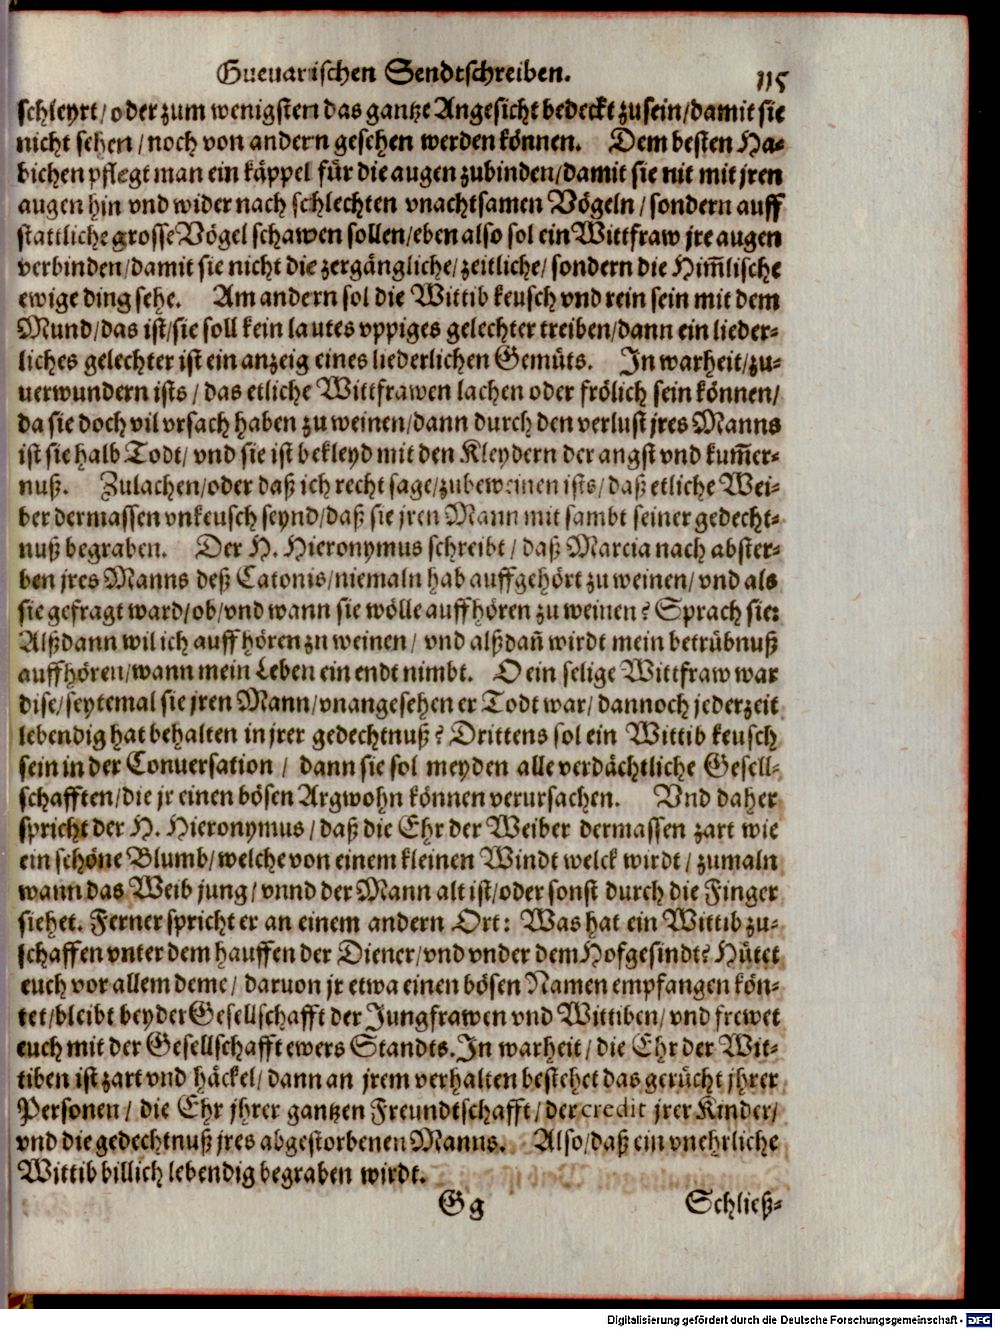 Gueuarischen Sendtschreiben. 115
schleyrt/ oder zum wenigsten das gantze Angesicht bedeckt zu sein/ damit sie
nicht sehen / noch von andern gesehen werden können. Dem besten Ha-
bichen pflegt man ein käppel für die augen zubinden/ damit sie nit mit jren
augen hin vnd wider nach schlechten vnachtsamen Vögeln / sondern auff
stattliche grosse Vögel schawen sollen/ eben also sol ein Wittfraw jre augen
verbinden/ damit sie nicht die zergängliche/ zeitliche/ sondern die Him̃lische
ewige ding sehe. Am andern sol die Wittib keusch vnd rein sein mit dem
Mund/ das ist/ sie soll kein lautes vppiges gelechter treiben/ dann ein lieder-
liches gelechter ist ein anzeig eines liederlichen Gemüts. In warheit/ zu-
uerwundern ists / das etliche Wittfrawen lachen oder frölich sein können/
da sie doch vil vrsach haben zu weinen/ dann durch den verlust jres Manns
ist sie halb Todt/ vnd sie ist bekleyd mit den Kleydern der angst vnd kum̃er-
nuß. Zulachen/ oder daß ich recht sage/ zubeweinen ists/ daß etliche Wei-
ber dermassen vnkeusch seynd/ daß sie jren Mann mit sambt seiner gedecht-
nuß begraben. Der H. Hieronymus schreibt / daß Marcia nach abster-
ben jres Manns deß Catonis/ niemaln hab auffgehört zu weinen/ vnd als
sie gefragt ward/ ob/ vnd wann sie wölle auffhören zu weinen? Sprach sie:
Alßdann wil ich auff hören zu weinen / vnd alßdañ wirdt mein betrübnuß
auffhören/ wann mein Leben ein endt nimbt. O ein selige Wittfraw war
dise/ seytemal sie jren Mann/ vnangesehen er Todt war/ dannoch jederzeit
lebendig hat behalten in jrer gedechtnuß? Drittens sol ein Wittib keusch
sein in der Conuersation / dann sie sol meyden alle verdächtliche Gesell-
schafften/ die jr einen bösen Argwohn können verursachen. Vnd daher
spricht der H. Hieronymus / daß die Ehr der Weiber dermassen zart wie
ein schöne Blumb/ welche von einem kleinen Windt welck wirdt / zumaln
wann das Weib jung / vnnd der Mann alt ist/ oder sonst durch die Finger
siehet. Ferner spricht er an einem andern Ort: Was hat ein Wittib zu-
schaffen vnter dem hauffen der Diener/ vnd vnder dem Hofgesindt? Hütet
euch vor allem deme / daruon jr etwa einen bösen Namen empfangen kön-
tet/ bleibt bey der Gesellschafft der Jungfrawen vnd Wittiben/ vnd frewet
euch mit der Gesellschafft ewers Standts. In warheit / die Ehr der Wit-
tiben ist zart vnd häckel/ dann an jrem verhalten bestehet das gerücht jhrer
Personen / die Ehr jhrer gantzen Freundtschafft / der credit jrer Kinder/
vnd die gedechtnuß jres abgestorbenen Manns. Also/ daß ein vnehrliche
Wittib billich lebendig begraben wirdt.
Gg Schließ-
Digitalisierung gefördert durch die Deutsche Forschungsgemeinschaft - DFG